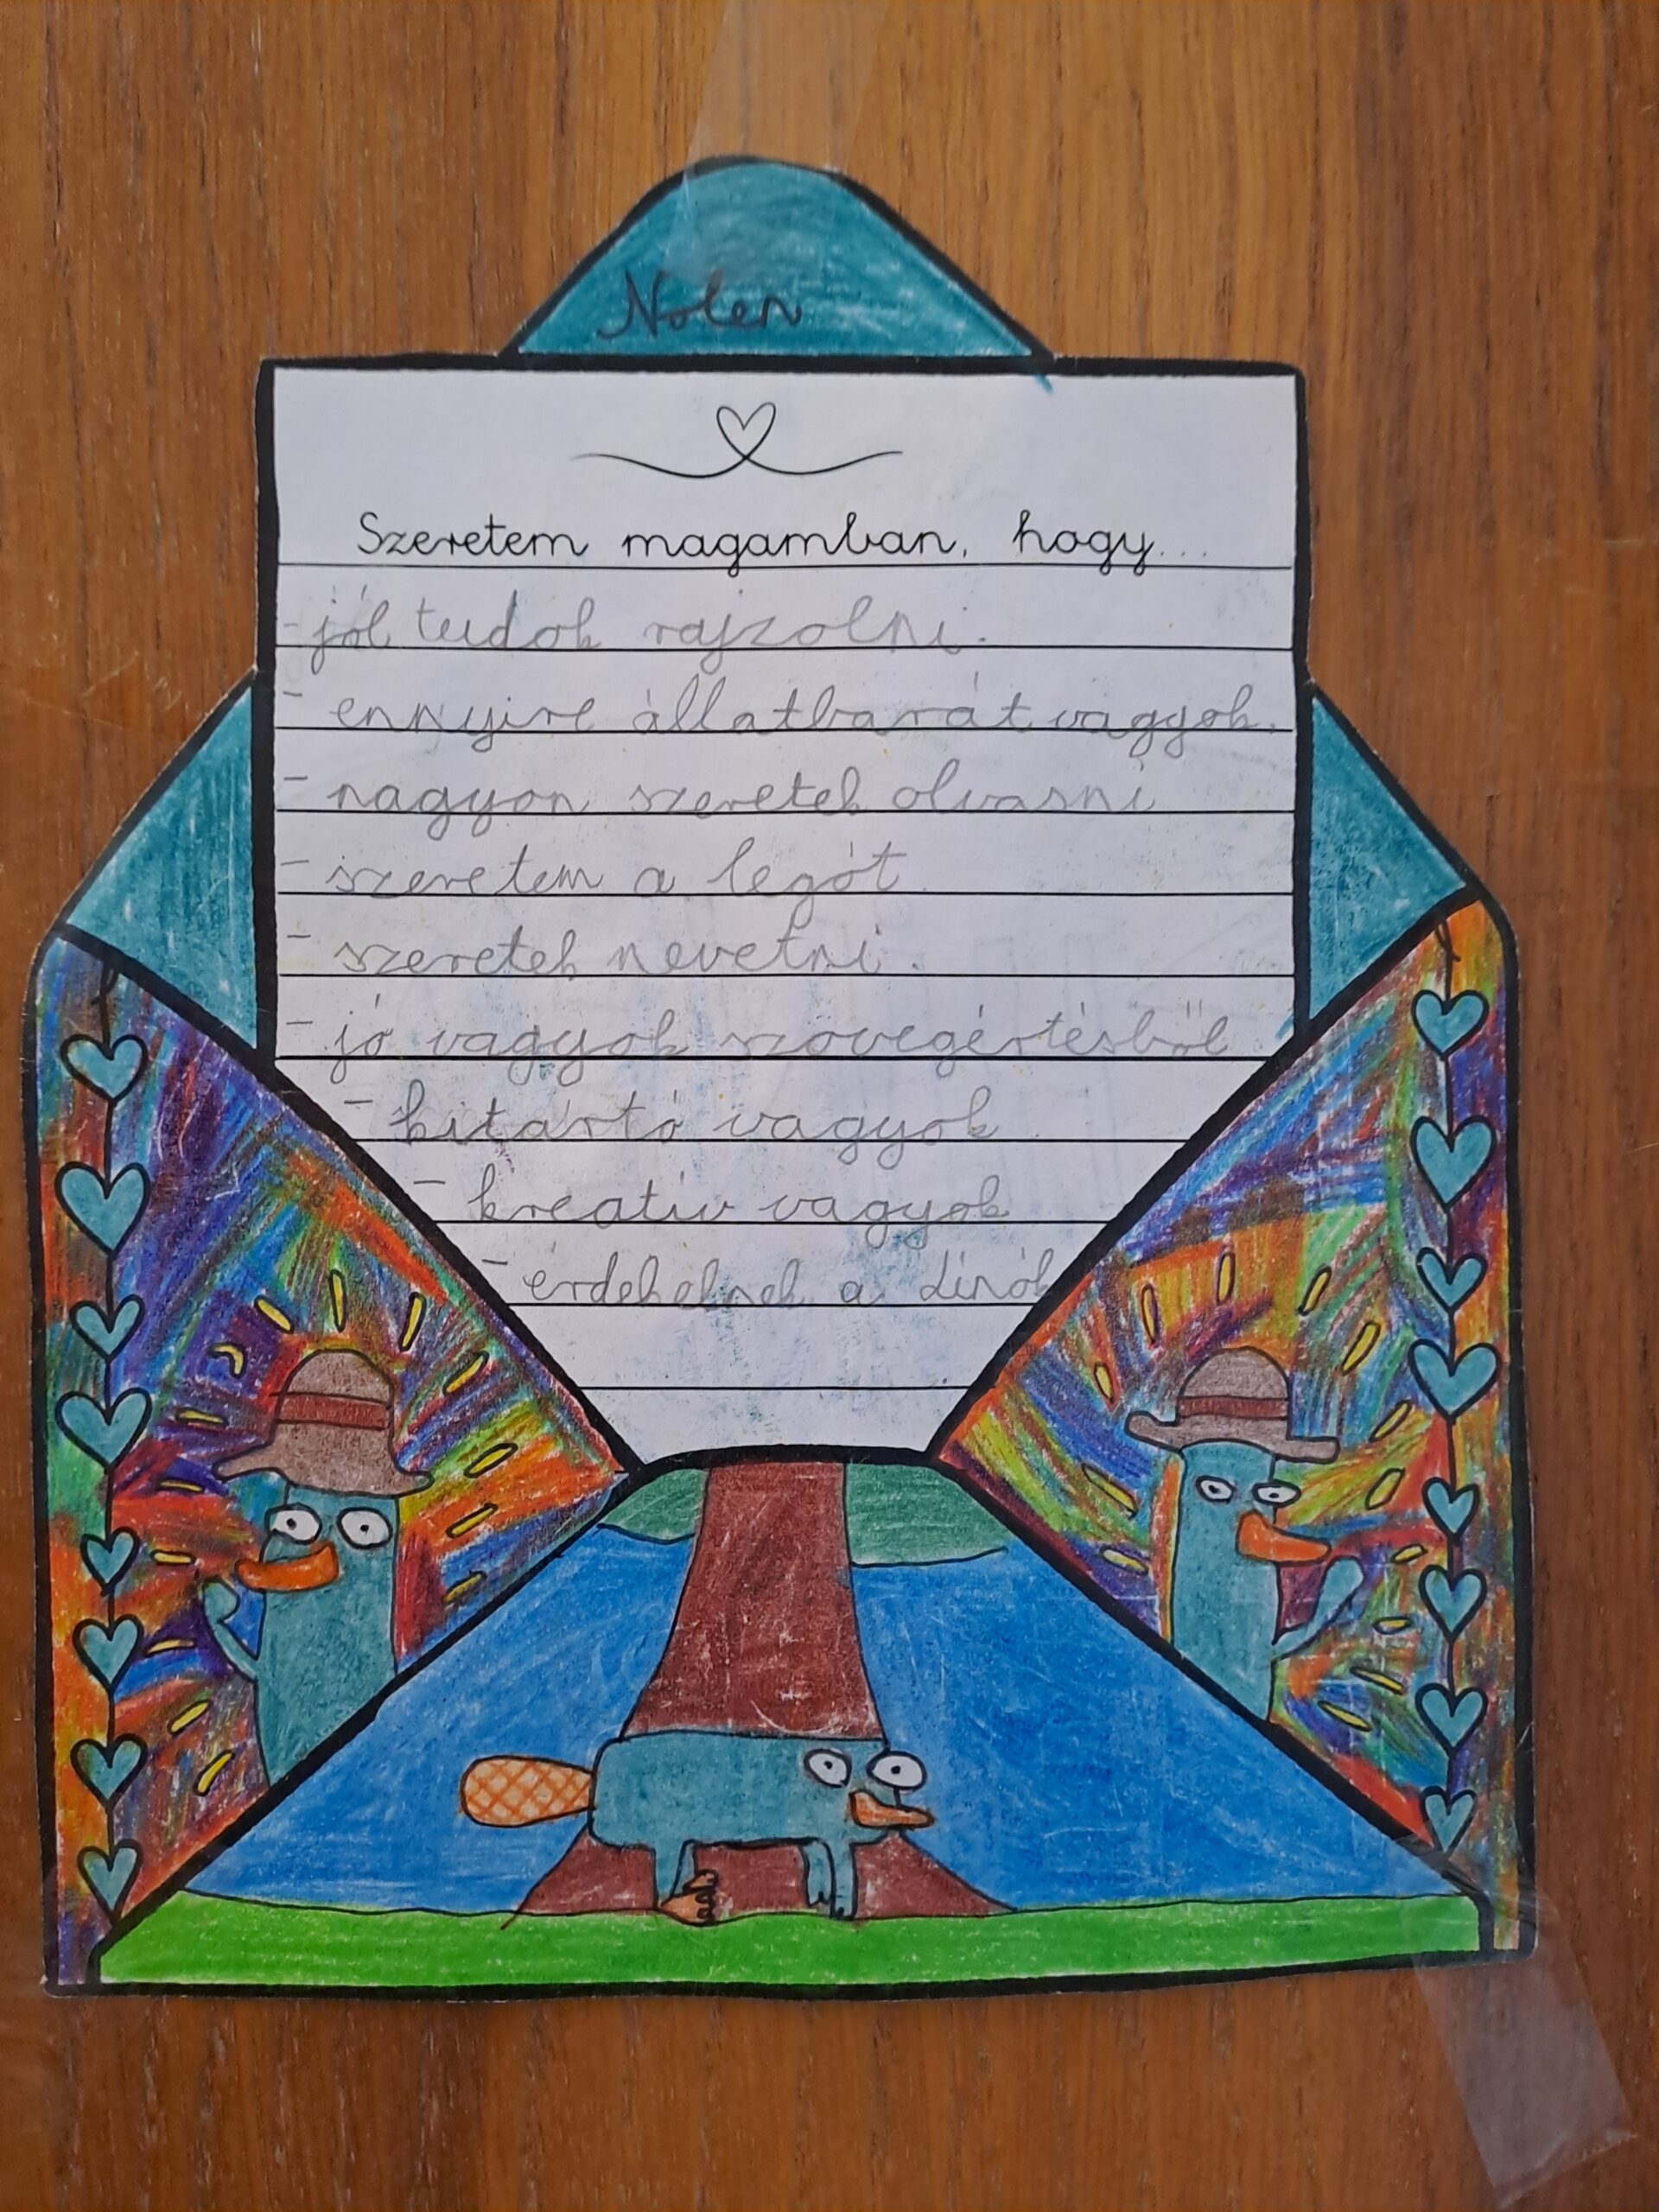 Nolen
Szeretem magamban, hogy...
- jól tudok rajzolni.
- ennyire állatbarát vagyok.
- nagyon szeretek olvasni
- szeretem a legót
- szeretek nevetni.
- jó vagyok szövegértésből
- kitártó vagyok
- kreatív vagyok
- érdekelnek a dínók